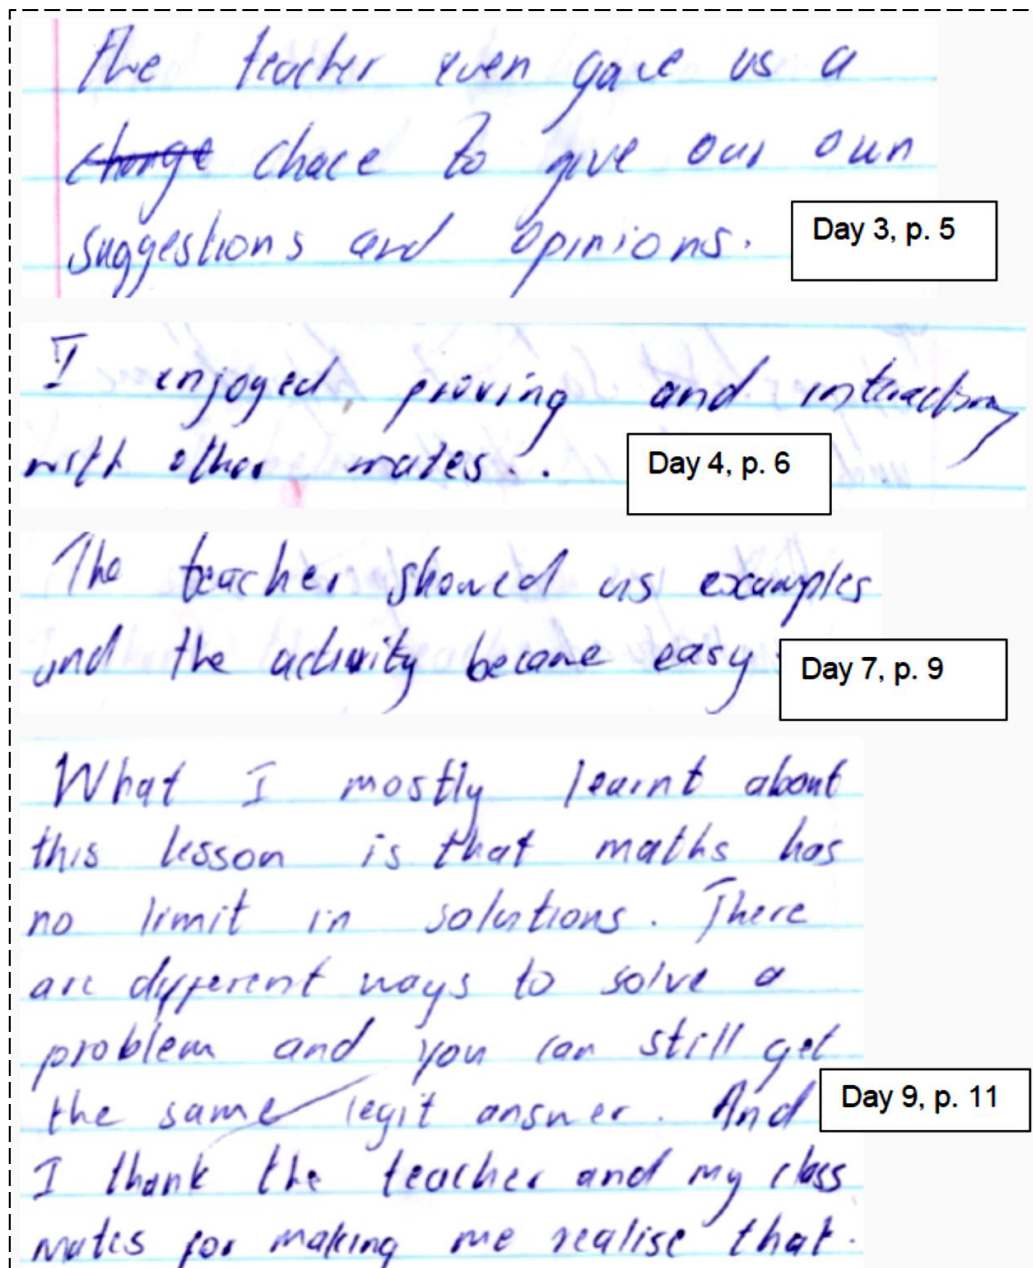 The teacher even gave us a
change chace to give our own
suggestions and opinions.
Day 3, p. 5
I enjoyed proving and interacting
with other mates..
Day 4, p. 6
The teacher showed us examples
and the activity became easy
Day 7, p. 9
What I mostly learnt about
this lesson is that maths has
no limit in solutions. There
are different ways to solve a
problem and you can still get
the same legit answer. And
Day 9, p. 11
I thank the teacher and my class
mates for making me realise that.